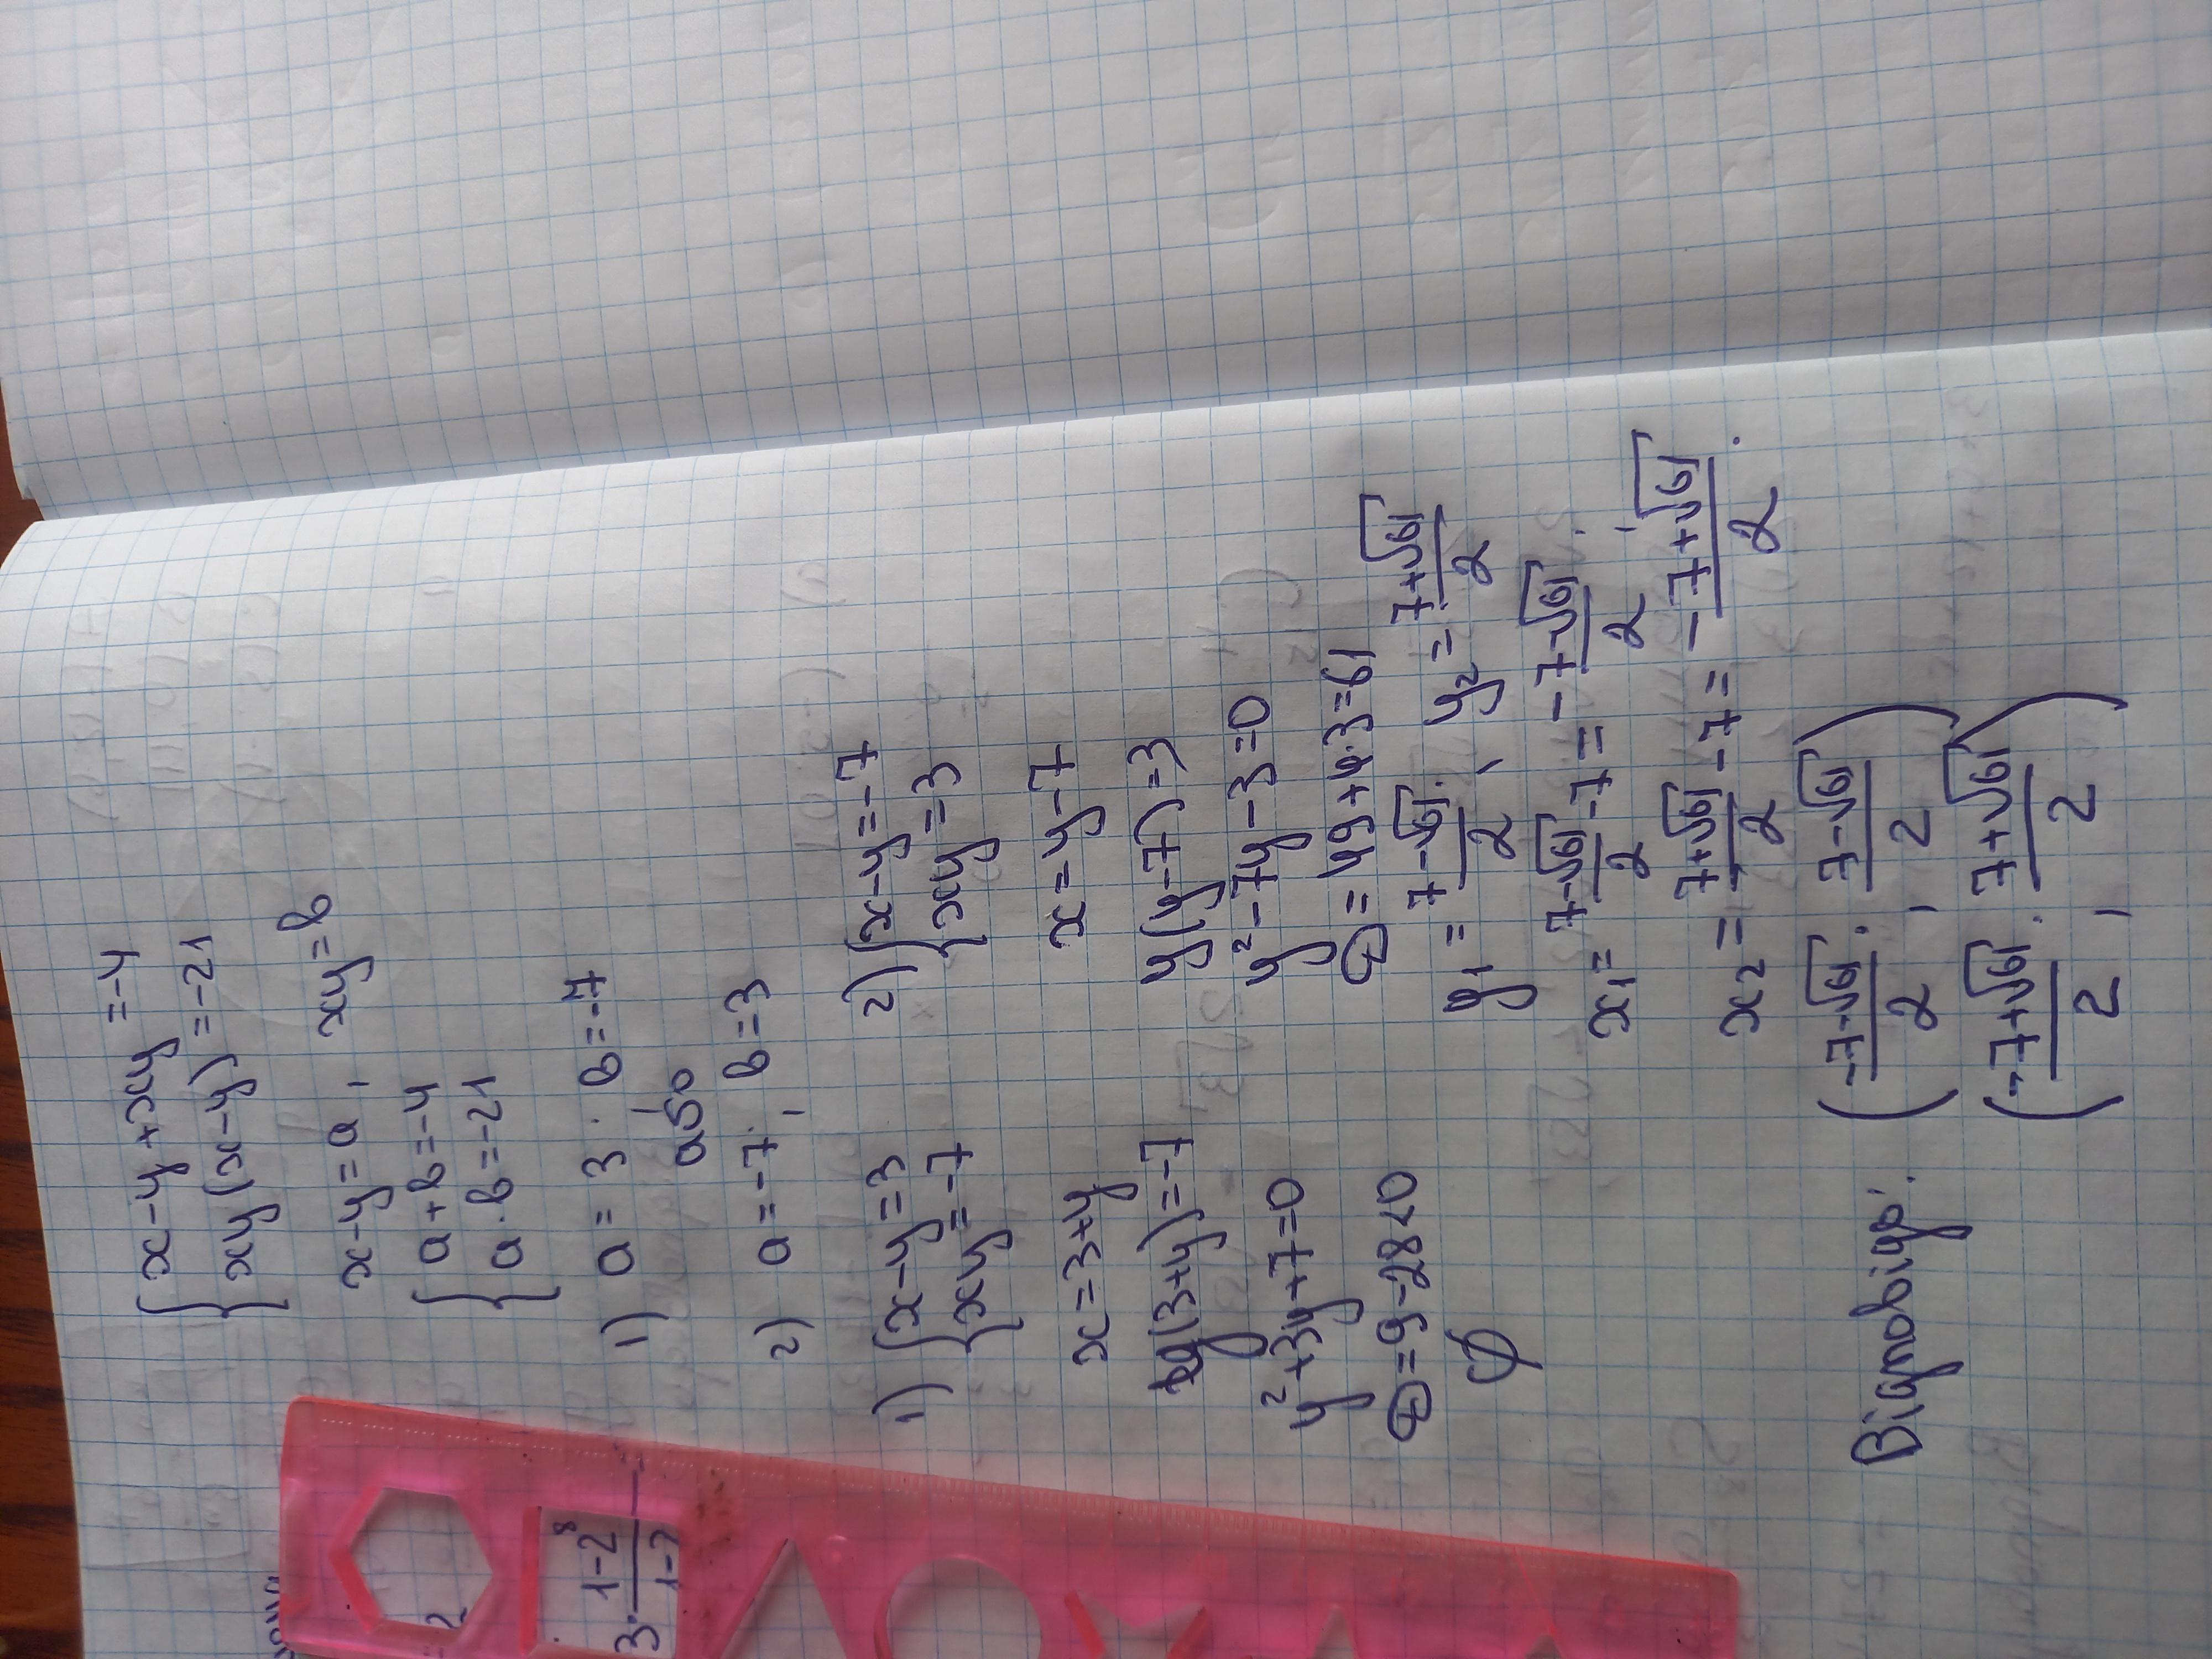 { x-y+xy = -4
{ xy(x-y) = -21
x-y=a, xy=b
{ a+b=-4
{ a·b=-21
1) a=3, b=-7
або
2) a=-7, b=3
1) { x-y=3
{ xy=-7
x=3+y
y(3+y)=-7
y²+3y+7=0
D=9-28<0
∅
2) { x-y=-7
{ xy=3
x=y-7
y(y-7)=3
y²-7y-3=0
D=49+4·3=61
y₁ = (7-√61)/2, y₂ = (7+√61)/2
x₁ = (7-√61)/2 - 7 = (-7-√61)/2,
x₂ = (7+√61)/2 - 7 = (-7+√61)/2.
Відповідь: ((-7-√61)/2, (7-√61)/2)
((-7+√61)/2, (7+√61)/2)
3· (1-2⁸)/(1-2